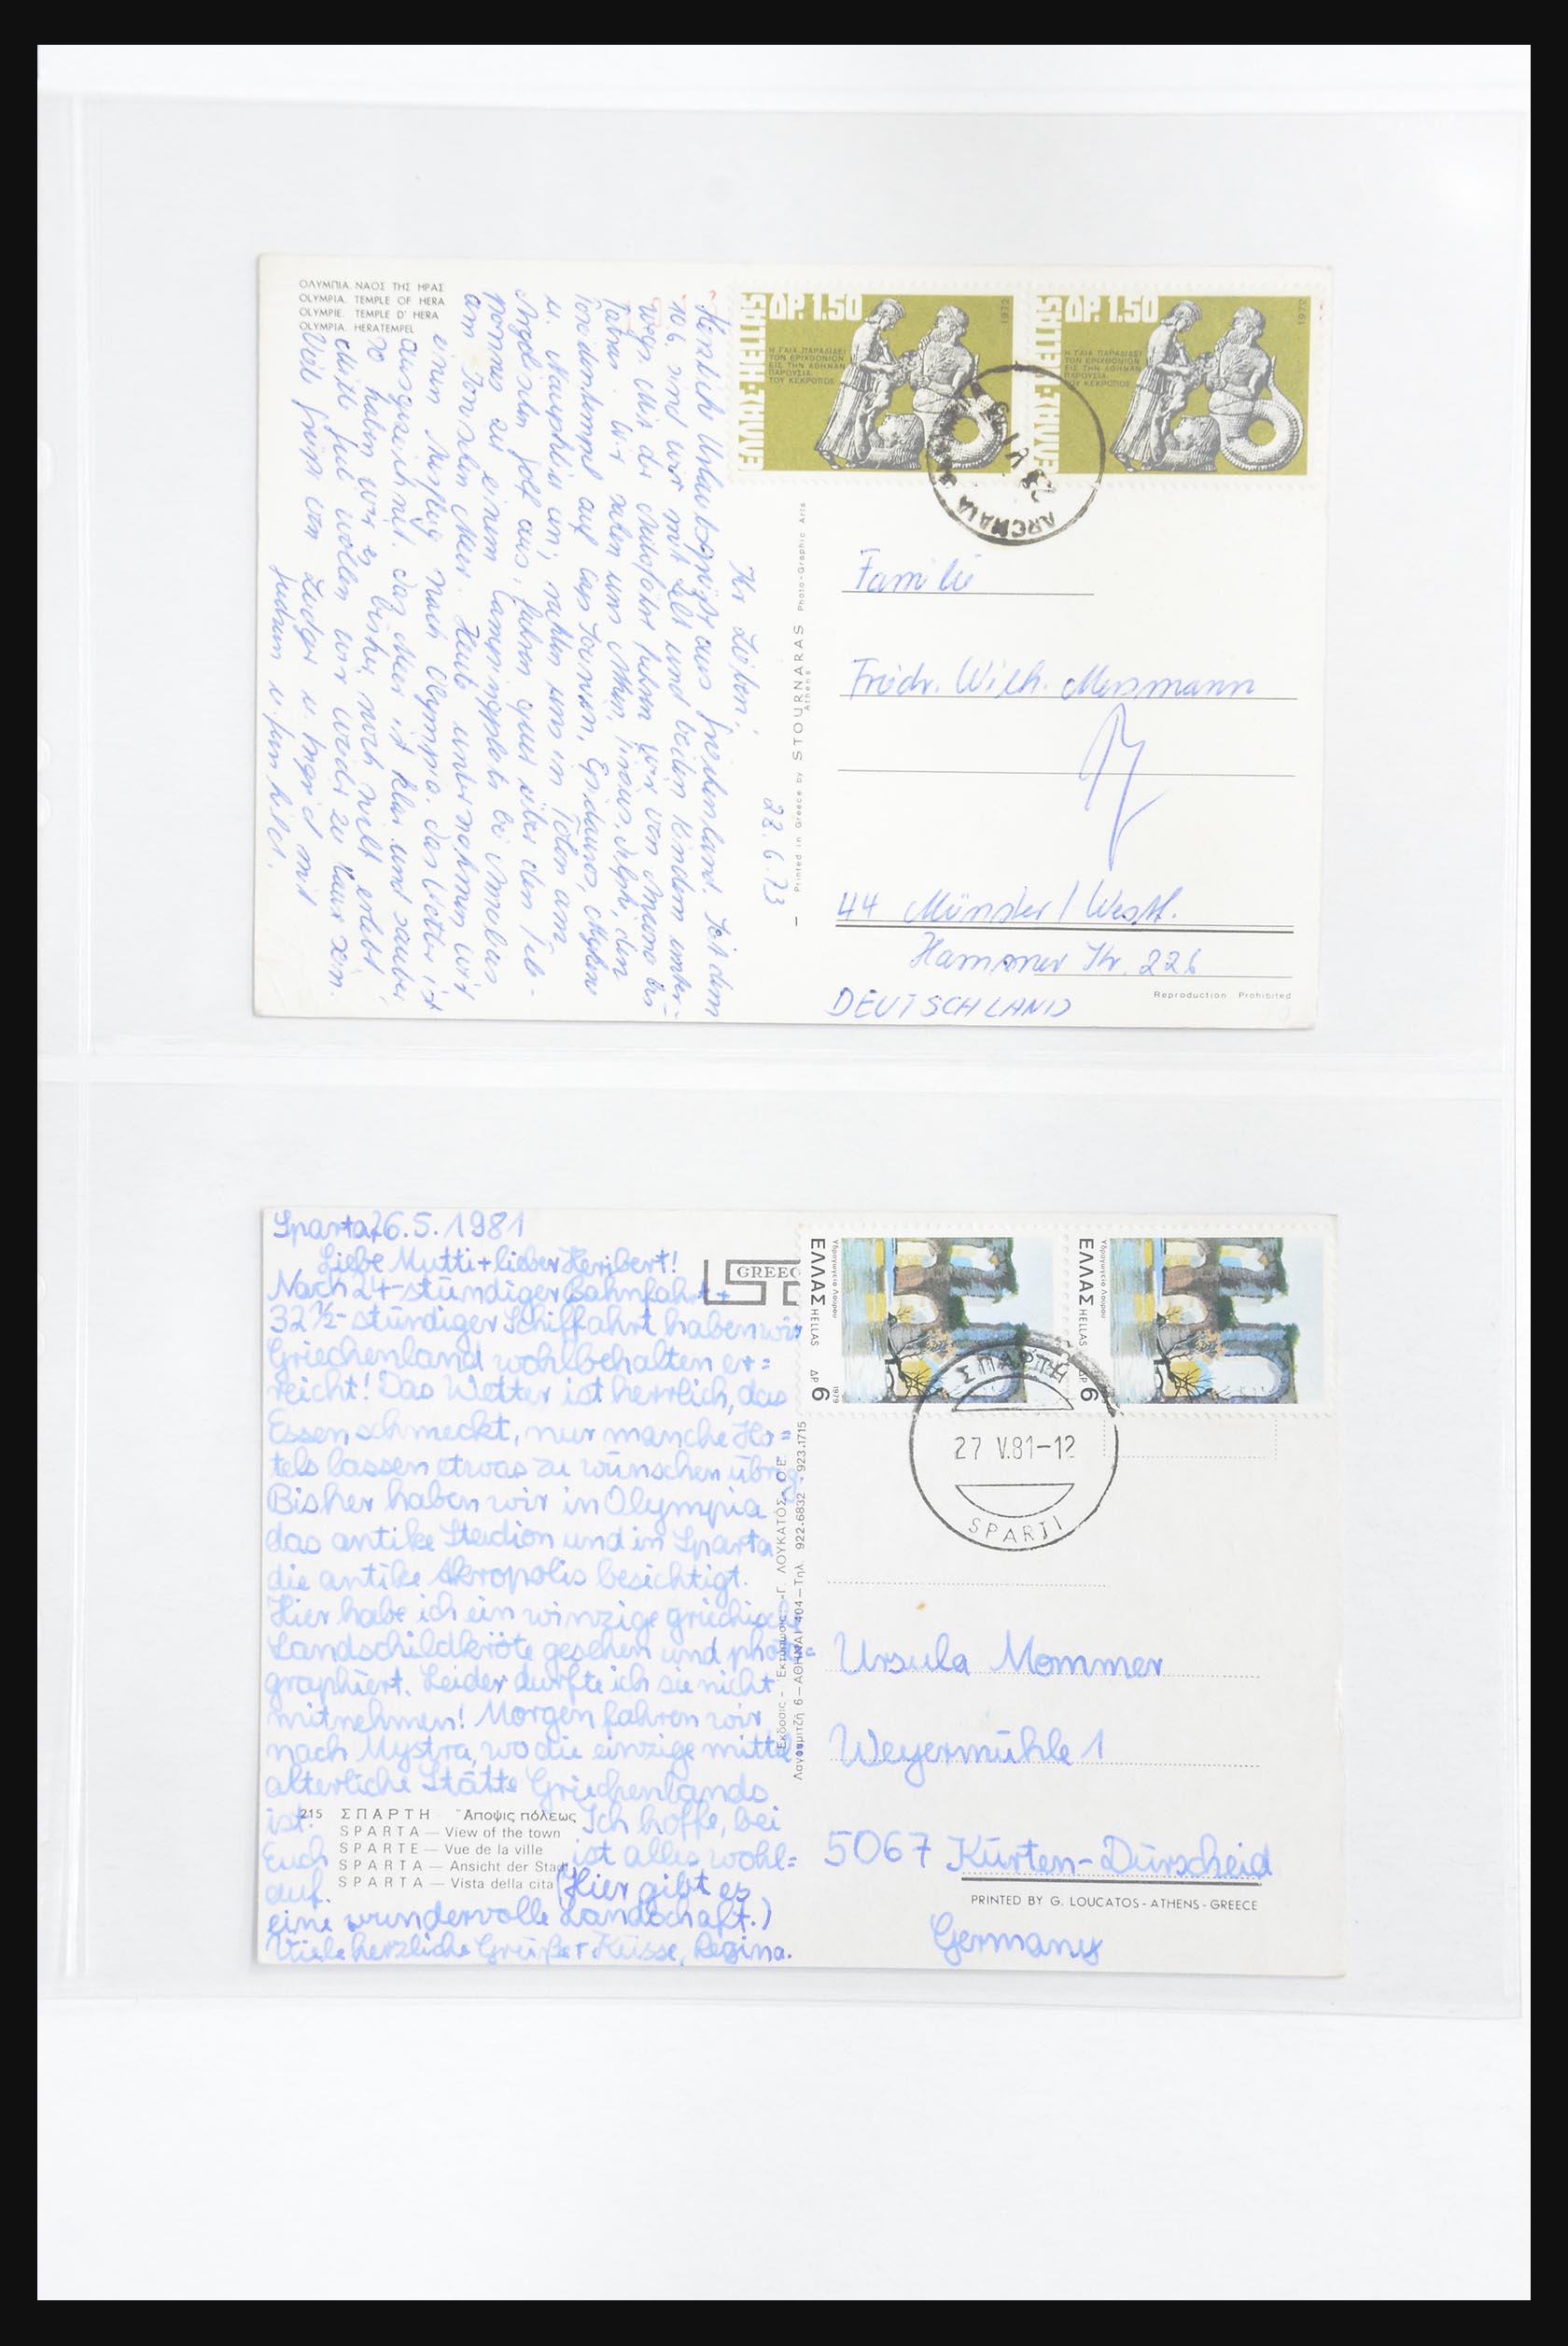 ΟΛΥΜΠΙΑ. ΝΑΟΣ ΤΗΣ ΗΡΑΣ
OLYMPIA. TEMPLE OF HERA
OLYMPIE. TEMPLE D' HERA
OLYMPIA. HERATEMPEL
23.6.73
Ihr Lieben,
Herzliche Urlaubsgrüße aus Griechenland. Seit dem
10.6. sind wir mit Zelt und beiden Kindern unter-
wegs. Mit der fuhren wir von Ancona bis
Patras. Wir sahen uns Athen, Piräus, Delphi, den
Poseidontempel auf Cap Sounion, Epidauros, Mykene
u. Nauplia an, ruhten uns in Tolon am
Argolischen Golf aus, fuhren quer über den Pelo-
ponnes zu einem Campingplatz bei
am Ionischen Meer. Heute unternahmen wir
einen Ausflug nach Olympia. Das Wetter ist
ausgezeichnet. Das Meer ist klar und sauber,
so haben wir es bisher noch nicht erlebt.
Mitte Juli wollen wir wieder zu Haus sein.
Viele Grüße von Ludger u. Ingrid mit
Judrun u.
ΕΛΛΑΣ-HELLAS
ΔΡ. 1.50
1972
Η ΓΑΙΑ ΠΑΡΑΔΙΔΕΙ
ΤΟΝ ΕΡΙΧΘΟΝΙΟΝ
ΕΙΣ ΤΗΝ ΑΘΗΝΑΝ
ΠΑΡΟΥΣΙΑ
ΤΟΥ ΚΕΚΡΟΠΟΣ
ΕΛΛΑΣ-HELLAS
ΔΡ. 1.50
1972
Η ΓΑΙΑ ΠΑΡΑΔΙΔΕΙ
ΤΟΝ ΕΡΙΧΘΟΝΙΟΝ
ΕΙΣ ΤΗΝ ΑΘΗΝΑΝ
ΠΑΡΟΥΣΙΑ
ΤΟΥ ΚΕΚΡΟΠΟΣ
ARCHAIA
Printed in Greece by STOURNARAS Photo-Graphic Arts
Athens
Familie
Friedr. Wilh. Messmann
44 Münster/Westf.
Hammer Str. 226
DEUTSCHLAND
Reproduction Prohibited
Sparta, 26.5.1981
Liebe Mutti + lieber Heribert!
Nach 24-stündiger Bahnfahrt +
32 ½-stündiger Schiffahrt haben wir
Griechenland wohlbehalten er=
reicht! Das Wetter ist herrlich, das
Essen schmeckt, nur manche Ho=
tels lassen etwas zu wünschen übrig.
Bisher haben wir in Olympia
das antike Stadion und in Sparta
die antike Akropolis besichtigt.
Hier habe ich ein winzige griechische
Landschildkröte gesehen und photo=
graphiert. Leider durfte ich sie nicht
mitnehmen! Morgen fahren wir
nach Mystra, wo die einzige mittel
alterliche Stätte Griechenlands
ist. Ich hoffe, bei
Euch ist alles wohl=
auf. (Hier gibt es
eine wundervolle Landschaft.)
Viele herzliche Grüße + Küsse, Regina.
215 ΣΠΑΡΤΗ — Ἄποψις πόλεως
SPARTA — View of the town
SPARTE — Vue de la ville
SPARTA — Ansicht der Stadt
SPARTA — Vista della cita
GREEC
Ὑδραγωγεῖο Λούρου
ΕΛΛΑΣ HELLAS ΔΡ 6
1979
Ὑδραγωγεῖο Λούρου
ΕΛΛΑΣ HELLAS ΔΡ 6
ΣΠΑΡΤΗ
27 V.81-12
SPARTI
Ἐκδόσεις - Ἐκτυπώσεις - Γ. ΛΟΥΚΑΤΟΣ Ο.Ε.
Λαγουμιτζῆ 6—ΑΘΗΝΑΙ 404—Τηλ. 922.6832 - 923.1715
Ursula Mommer
Weyermühle 1
5067 Kürten-Dürscheid
PRINTED BY G. LOUCATOS - ATHENS - GREECE
Germany